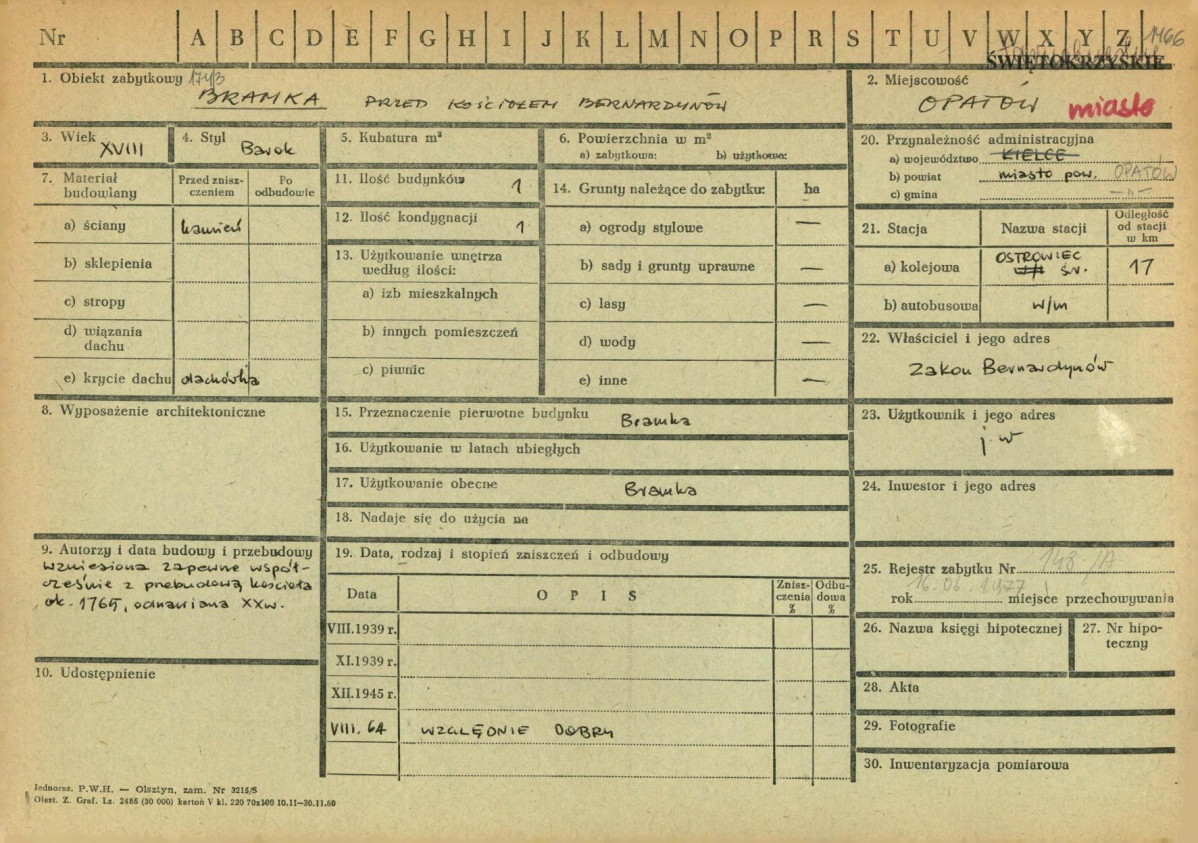 Nr A B C D E F G H I J K L M N O P R S T U V W X Y Z Ż 1466
ŚWIĘTOKRZYSKIE
1. Obiekt zabytkowy
BRAMKA PRZED KOŚCIOŁEM BERNARDYNÓW
2. Miejscowość
OPATÓW miasto
3. Wiek
XVIII
4. Styl
Barok
5. Kubatura m³
6. Powierzchnia w m²
a) zabytkowa: b) użytkowa:
7. Materiał budowlany
Przed zniszczeniem
Po odbudowie
a) ściany kamień
b) sklepienia
c) stropy
d) wiązania dachu
e) krycie dachu dachówka
8. Wyposażenie architektoniczne
9. Autorzy i data budowy i przebudowy
wzniesiona zapewne współ-
cześnie z przebudową kościoła
ok. 1765, odnawiana XXw.
10. Udostępnienie
11. Ilość budynków 1
12. Ilość kondygnacji 1
13. Użytkowanie wnętrza
według ilości:
a) izb mieszkalnych
b) innych pomieszczeń
c) piwnic
14. Grunty należące do zabytku: ha
a) ogrody stylowe —
b) sady i grunty uprawne —
c) lasy —
d) wody —
e) inne —
15. Przeznaczenie pierwotne budynku
Bramka
16. Użytkowanie w latach ubiegłych
17. Użytkowanie obecne
Bramka
18. Nadaje się do użycia na
19. Data, rodzaj i stopień zniszczeń i odbudowy
Data OPIS Znisz-
czenia
% Odbu-
dowa
%
VIII.1939 r.
XI.1939 r.
XII.1945 r.
VIII. 64 WZGLĘDNIE DOBRY
20. Przynależność administracyjna
a) województwo KIELCE
b) powiat miasto pow. OPATÓW
c) gmina —"—
21. Stacja Nazwa stacji Odległość
od stacji
w km
a) kolejowa OSTROWIEC
ŚW. 17
b) autobusowa w/m
22. Właściciel i jego adres
Zakon Bernardynów
23. Użytkownik i jego adres
j.w
24. Inwestor i jego adres
25. Rejestr zabytku Nr 148/A
16.06.1977
rok miejsce przechowywania
26. Nazwa księgi hipotecznej
27. Nr hipo-
teczny
28. Akta
29. Fotografie
30. Inwentaryzacja pomiarowa
Jednoraz. P.W.H. — Olsztyn, zam. Nr 3215/S
Olszt. Z. Graf. Lz. 2485 (30 000) kartoń V kl. 220 70x100 10.11—30.11.60